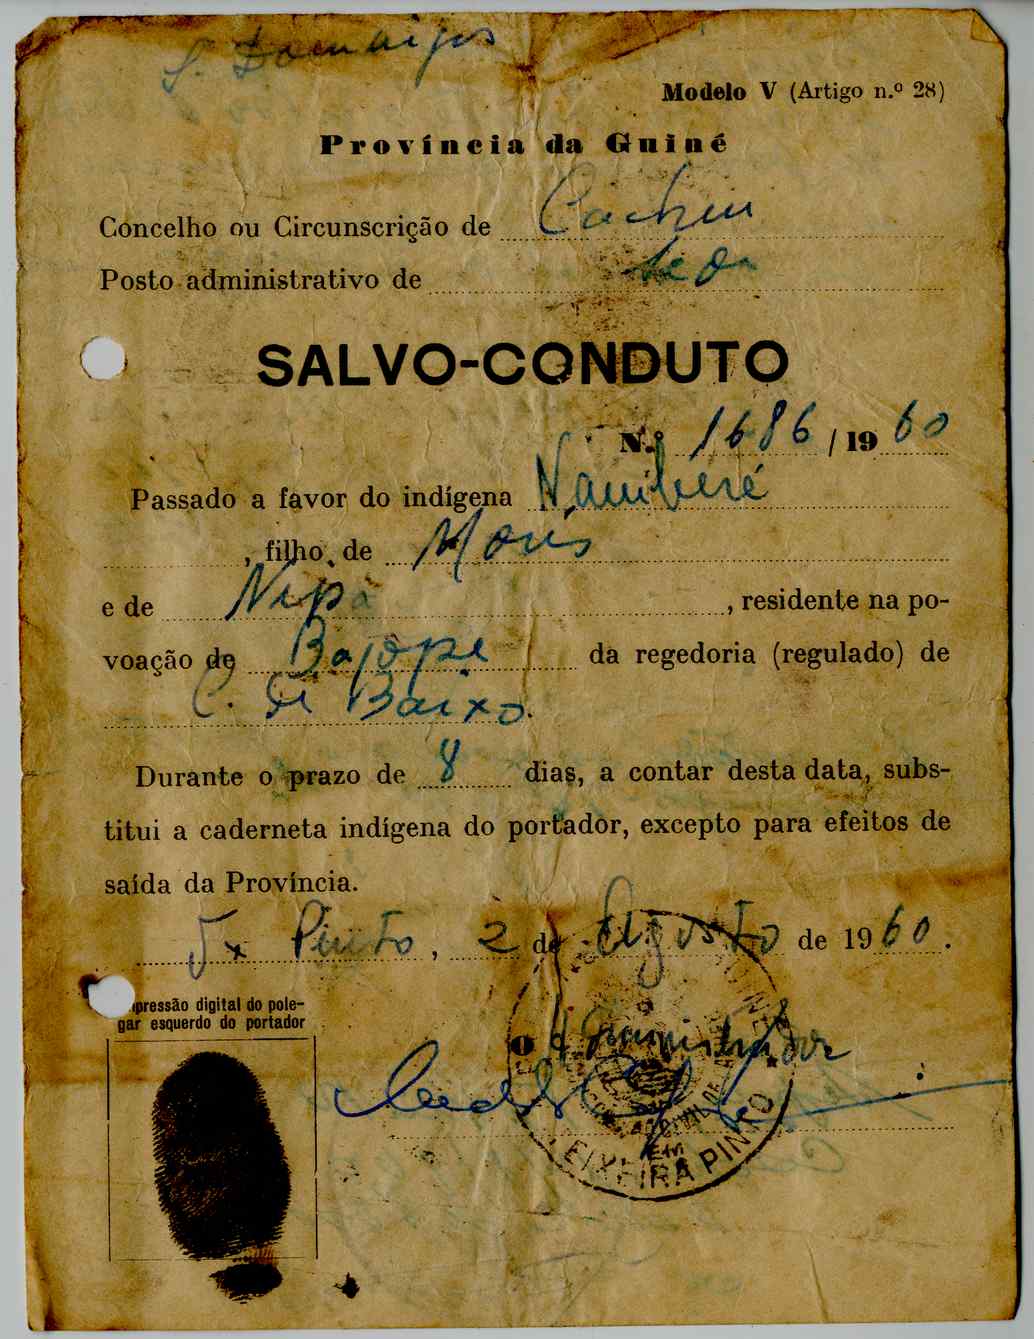 S. Domingos
Modelo V (Artigo n.º 28)
Província da Guiné
Concelho ou Circunscrição de Cacheu
Posto administrativo de
SALVO-CONDUTO
N.º 1686 / 1960
Passado a favor do indígena Namberé
, filho de Moris
e de Nipà, residente na po-
voação de Bajope da regedoria (regulado) de
C. de Baixo.
Durante o prazo de 8 dias, a contar desta data, subs-
titui a caderneta indígena do portador, excepto para efeitos de
saída da Província.
Tx Pinto, 2 de Agosto de 1960.
Impressão digital do pole-
gar esquerdo do portador
O Administrador
EM
TEIXEIRA PINTO